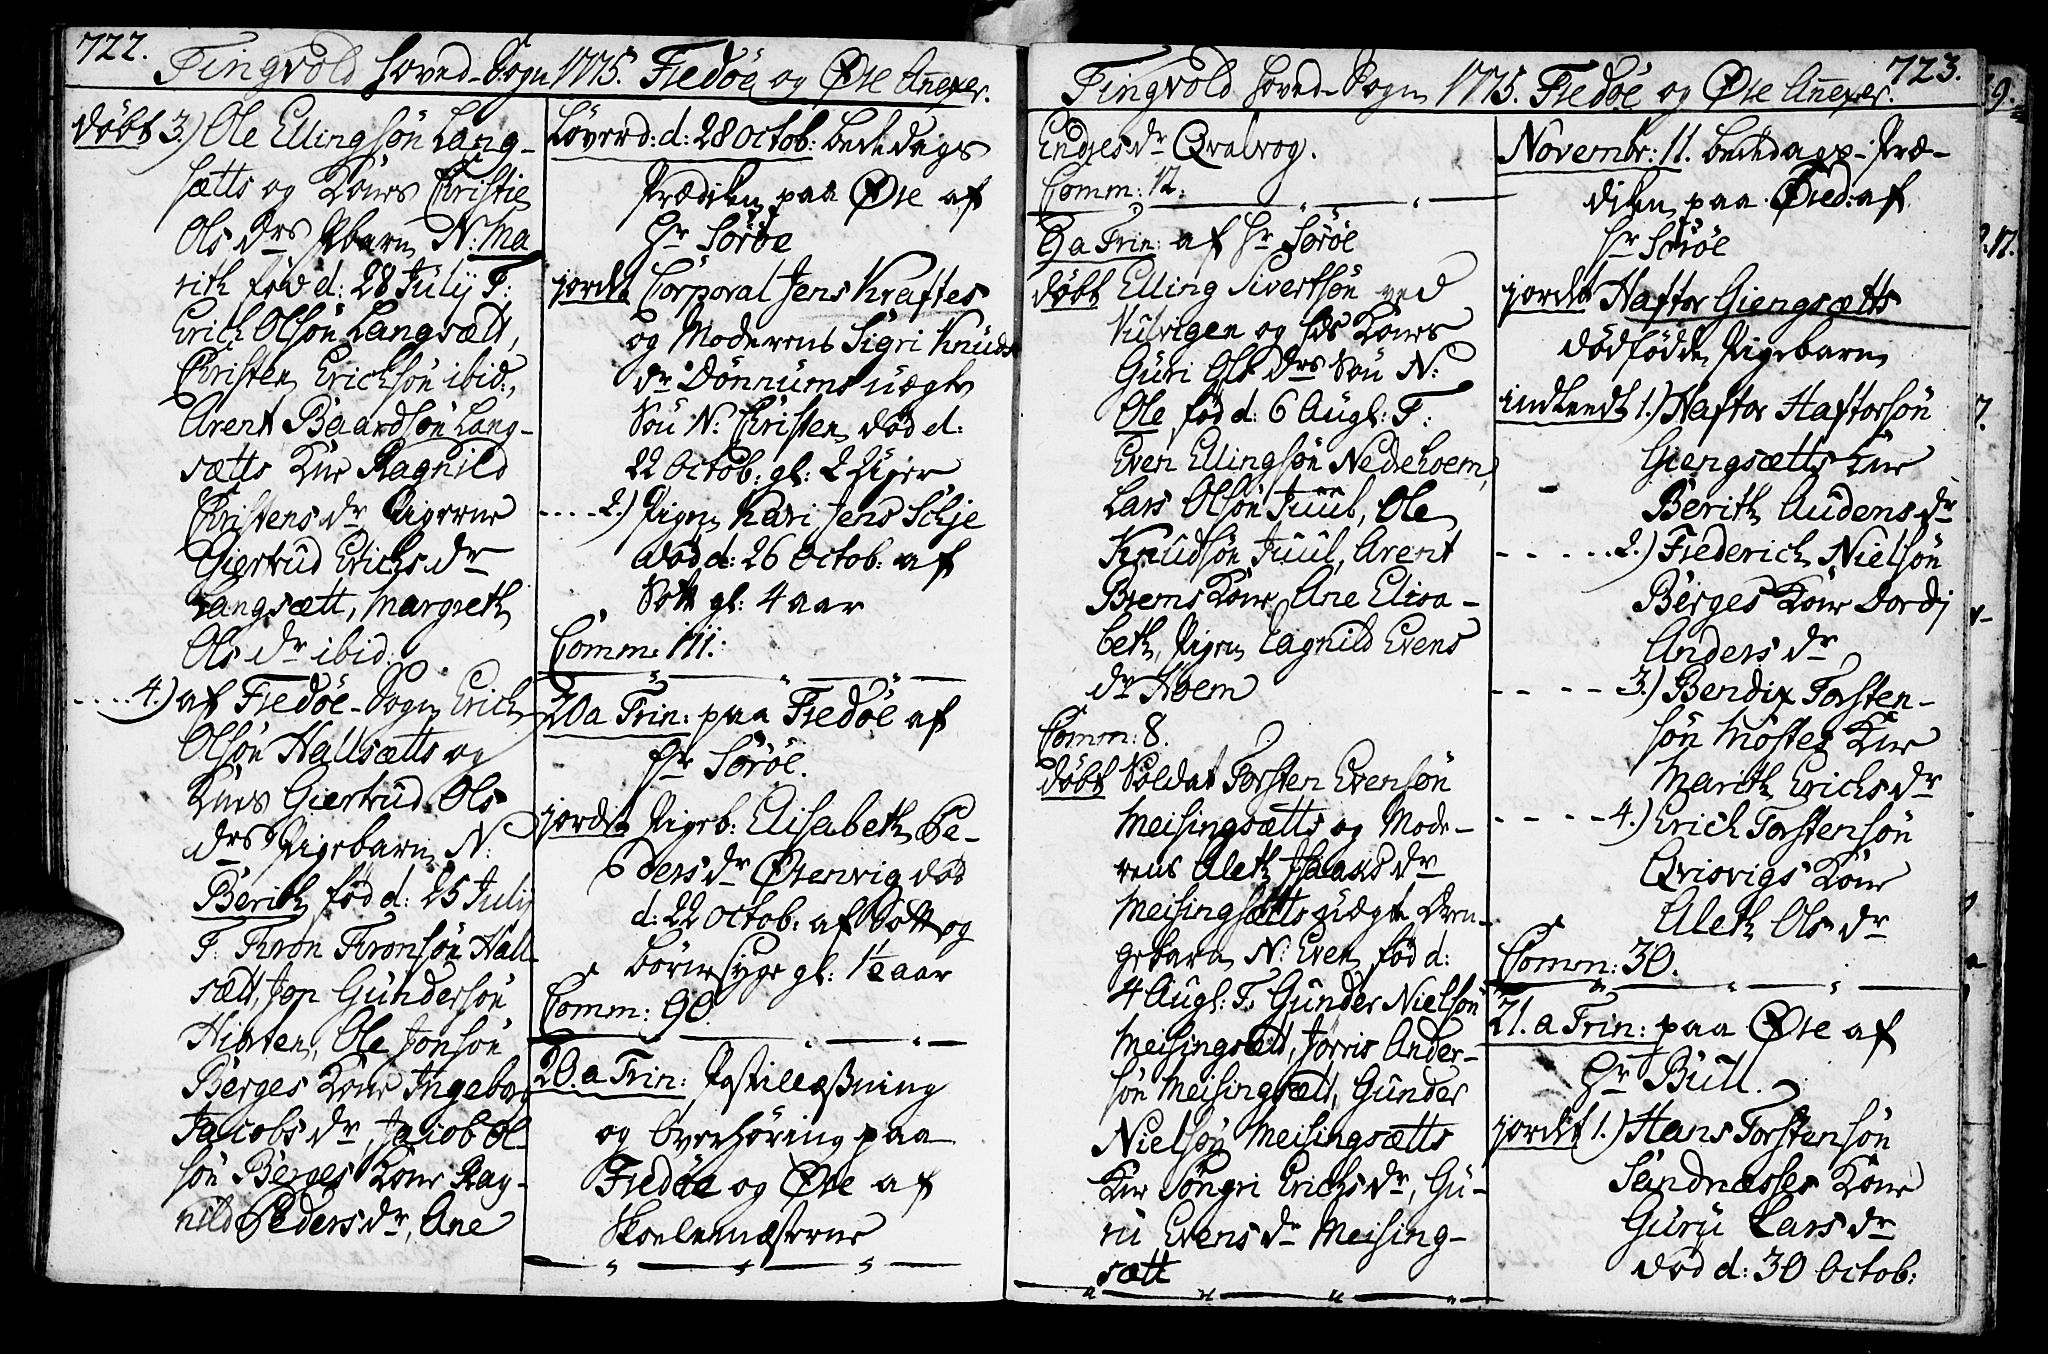 722.
Tingvold Hoved-Sogn 1775. Fredøe og Øre Anexer.
døbt 3.) Ole Ellingsøn Lang-
sætts og Kones Christie
Ols Drs Pbarn N: Ma
rith fød d: 28 July F:
Erich Olsøn Langsætt,
Christen Erichsøn ibid:,
Arent Baardsøn Lang-
sætts Kne Ragnild
Christens Dr Pigerne
Giertrud Erichs Dr
Langsætt, Margreth
Ols Dr ibid.
....4.) af Fredøe-Sogn Erich
Olsøn Hallsætts og
Knes Giertrud Ols
Drs Pigebarn N:
Berith fød d: 25 July
F: Tron Tronsøn Hall-
sætt, Jon Gundersøn
Ole Jonsøn
Berges Kone Ingebor
Jacobs Dr, Jacob Ol-
søn Berges Kone Rag-
nild Peders Dr, Ane
Løverd: d: 28 Octob: bededags
Prædiken paa Øre af
Hr Sørøe
jordt Corporal Jens Kraftes
og Moderens Sigri Knuds
Dr Dønnums uægte
Søn N: Christen død d:
22 Octob: gl: 2 Uger
....2.) Pigen Kari Jens
død d: 26 Octob: af
Sott gl: 4 aar
Comm: 111.
20 a Trin: paa Fredøe af
Hr Sørøe.
jordt Pigeb: Elisabeth Pe-
ders Dr Ørenvig død
d: 22 Octob: af Sott og
børnesyge gl: 1½ aar
Comm: 90.
20. a Trin: Postillæßning
og Overhøring paa
Fredøe og Øre af
Skolemæsterne
723.
Tingvold Hoved-Sogn 1775. Fredøe og Øre Anexer.
Endres Dr Qvalvog.
Comm: 12.
9 a Trin: af Hr Sørøe
døbt Elling Sivertsøn ved
Vulvigen og hds Kones
Guri Ols Drs Søn N:
Ole fød d: 6 Augl: F:
Even Ellingsøn Nedrehoem,
Lars Olsøn Juul, Ole
Knudsøn Juul, Arent
Brems Kone Ane Elisa-
beth, Pigen Ragnild Evens
Dr Hoem
Comm: 8.
døbt Soldat Torsten Evensøn
Meisingsætts og Mode-
rens Aleth Isaacs Dr
Meisingsætts uægte Dren-
gebarn N: Even fød d:
4 Augl: F: Gunder Nielsøn
Meisingsætt, Jørris Ander-
søn Meisingsætt, Gunder
Nielsøn Meisingsætts
Kne Søngri Erichs Dr, Gu-
ru Evens Dr Meising-
sætt
Novembr: 11. bededags-Præ-
diken paa Øre d: af
Hr Sørøe
jordt Haftor Giengsætts
dødfødde Pigebarn
indledt 1.) Haftor Haftorsøn
Giengsætts Kne
Berith Audens Dr
.....2.) Frederich Nielsøn
Berges Kone Dordj
Anders Dr
....3.) Bendix Torsten-
søn Møstes Kne
Marith Erichs Dr
....4.) Erich Torstensøn
Qvisvigs Kone
Aleth Ols Dr
Comm: 30.
21. a Trin: paa Øre af
Hr Bull.
jordt 1.) Hans Torstensøn
Sandnæsses Kone
Guru Lars Dr
død d: 30 Octob: